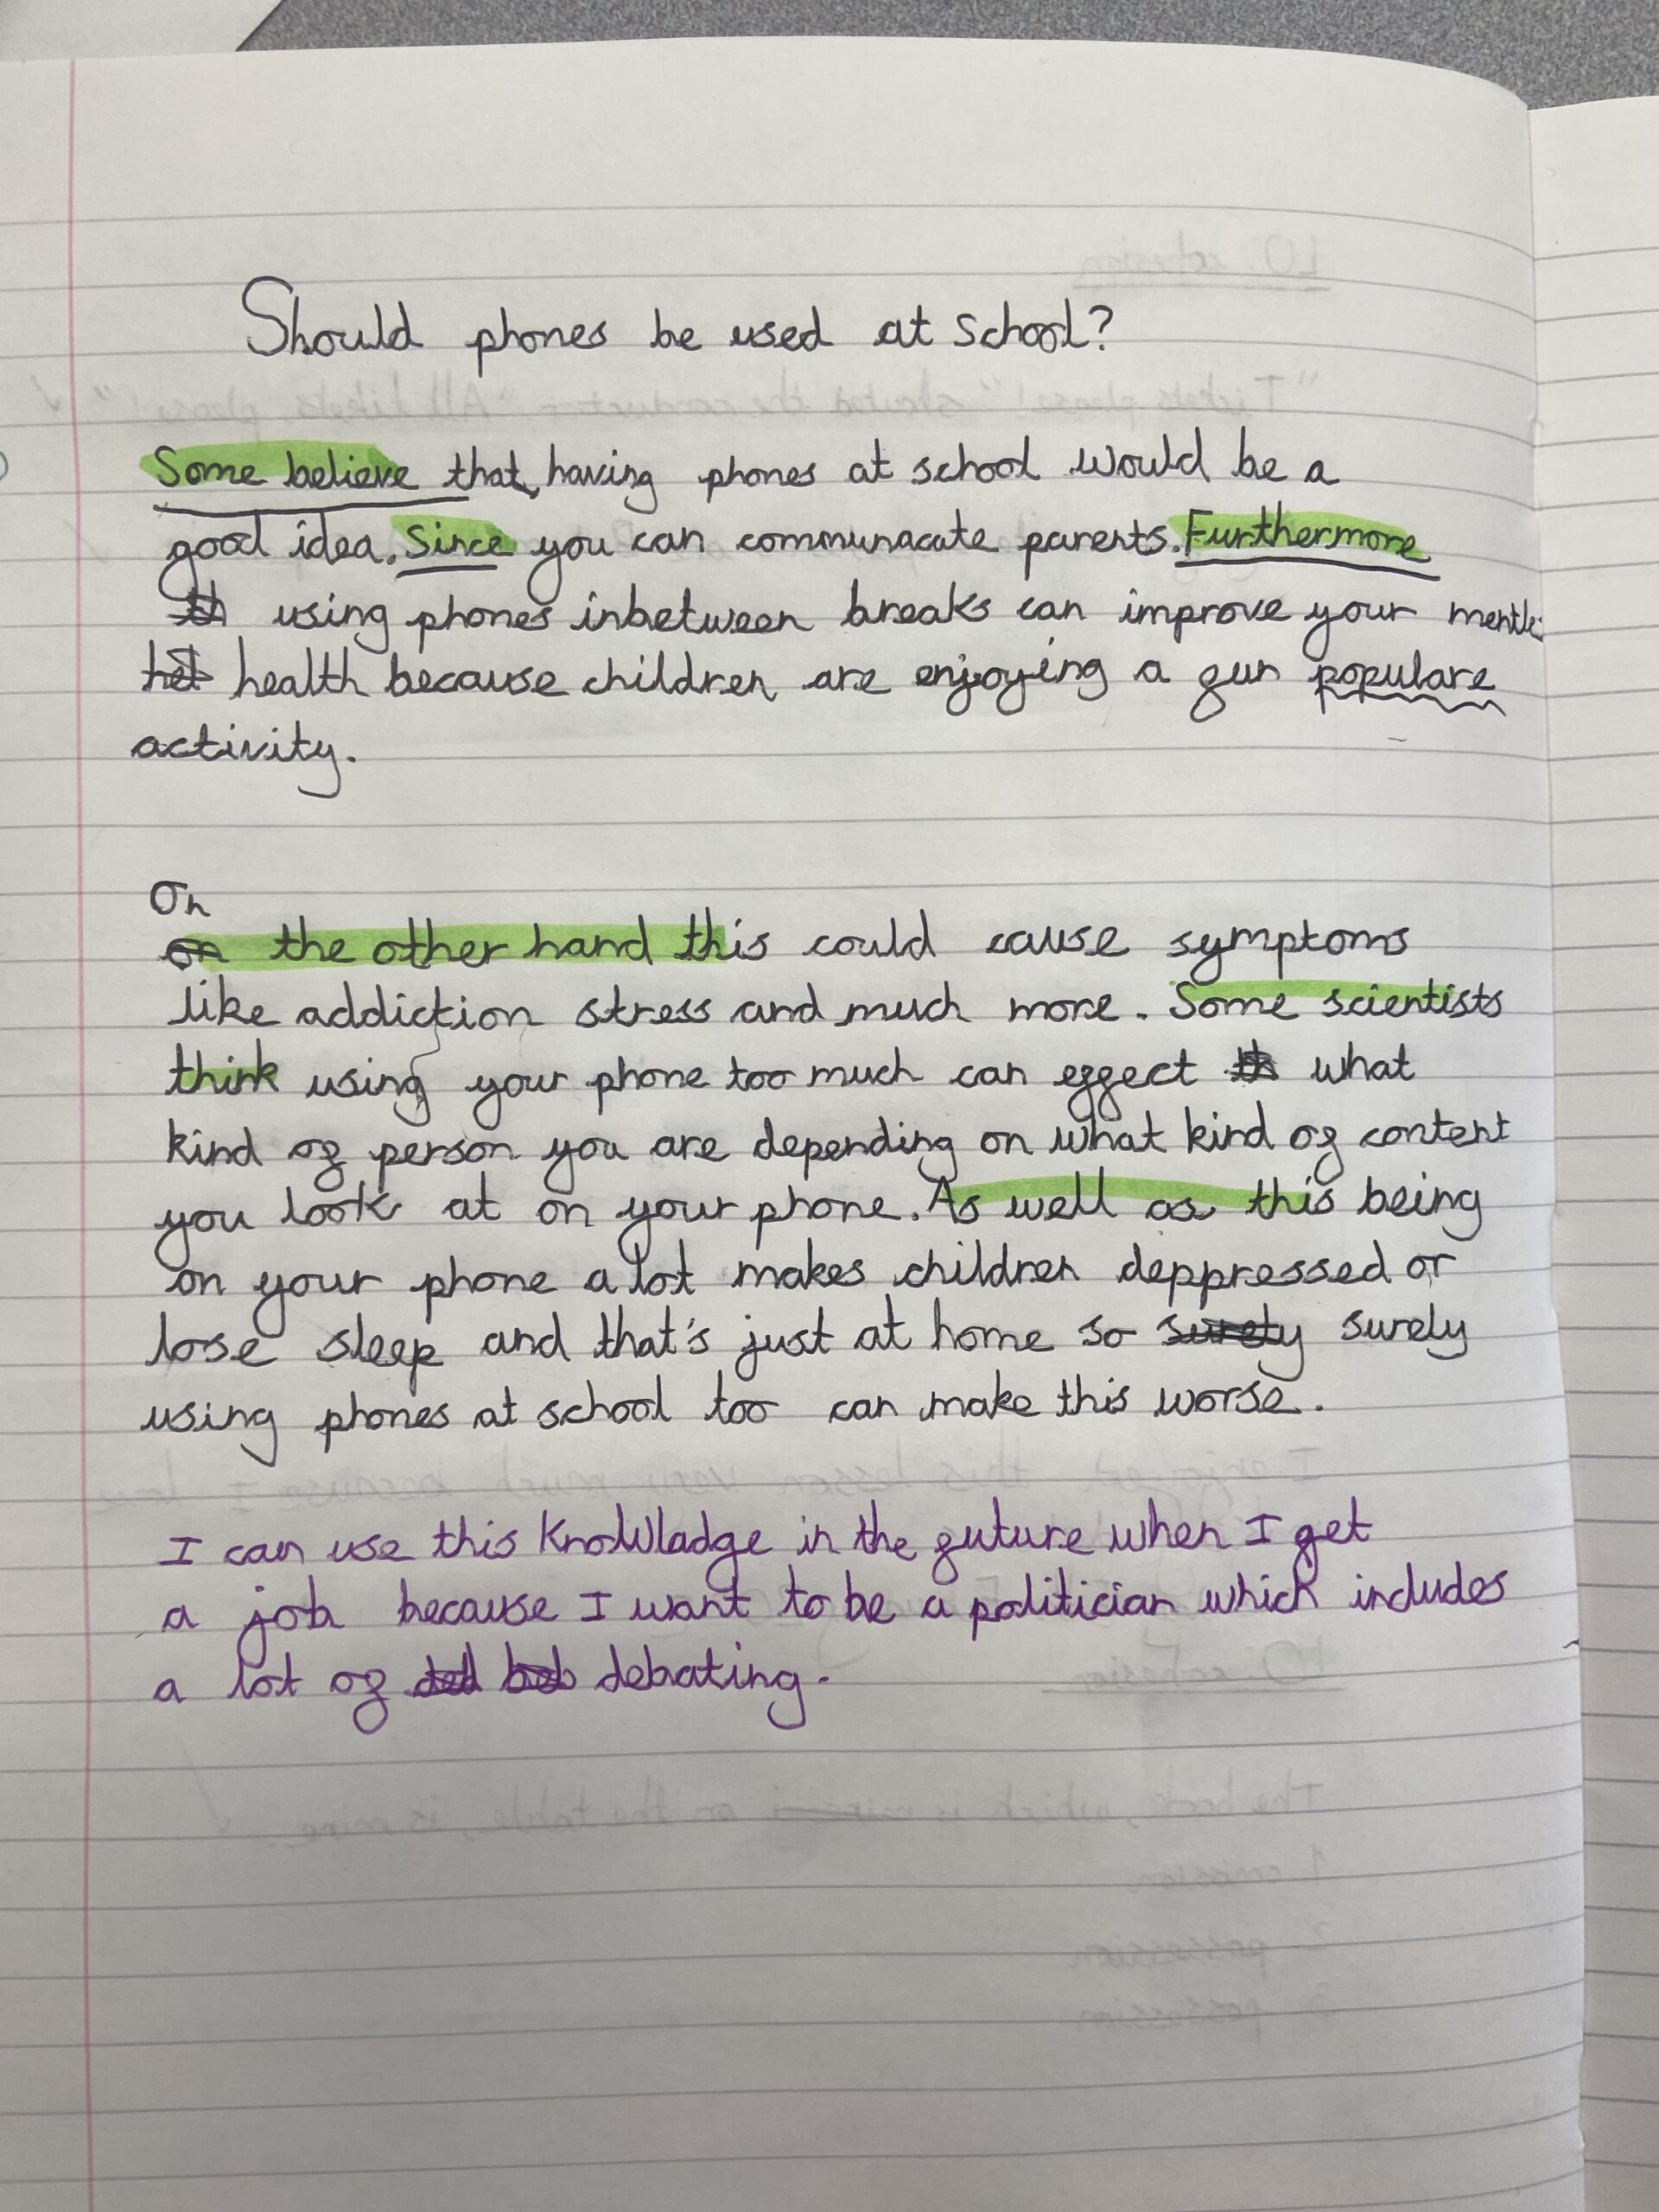 Should phones be used at School?
Some believe that, having phones at school would be a
good idea. Since you can communacate parents. Furthermore
using phones inbetween breaks can improve your mentle
health because children are enjoying a fun populare
activity.
On
the other hand this could cause symptoms
like addiction stress and much more. Some scientists
think using your phone too much can effect what
kind of person you are depending on what kind of content
you look at on your phone. As well as this being
on your phone a lot makes children deppressed or
lose sleep and that's just at home so surely surely
using phones at school too can make this worse.
I can use this KnoWladge in the future when I get
a job because I want to be a politician which includes
a lot of debating.